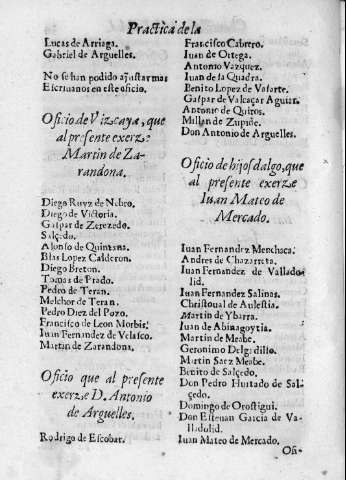 Practica de la
Lucas de Arriaga.
Gabriel de Arguelles.
No se han podido ajustar mas
Escriuanos en este oficio.
Oficio de Vizcaya, que
al presente exerze
Martin de Za-
randona.
Diego Ruyz de Nebro.
Diego de Victoria.
Gaspar de Zerezedo.
Salçedo.
Alonso de Quintana.
Blas Lopez Calderon.
Diego Breton.
Tomas de Prado.
Pedro de Teran.
Melchor de Teran.
Pedro Diez del Pozo.
Francisco de Leon Morbis.
Iuan Fernandez de Velasco.
Martin de Zarandona.
Oficio que al presente
exerze D. Antonio
de Arguelles.
Rodrigo de Escobar.
Francisco Cabrero.
Iuan de Ortega.
Antonio Vazquez.
Iuan de la Quadra.
Benito Lopez de
Gaspar de Valcaçar Aguiar.
Antonio de Quiros.
Millan de Zupide.
Don Antonio de Arguelles.
Oficio de hijosdalgo, que
al presente exerze
Iuan Mateo de
Mercado.
Iuan Fernandez Menchaca.
Andres de Chazarreta.
Iuan Fernandez de Vallado
lid.
Iuan Fernandez Salinas.
Christoual de Aulestia.
Martin de Ybarra.
Iuan de Abinagoytia.
Martin de Meabe.
Geronimo Delgadillo.
Martin Saez Meabe.
Benito de Salçedo.
Don Pedro Hurtado de Sal-
çedo.
Domingo de Orostigui.
Don Esteuan Garcia de Va-
lladolid.
Iuan Mateo de Mercado.
Ofi-